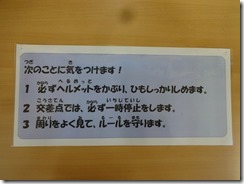 次のことに気をつけます!
1 必ずヘルメットをかぶり、ひもしっかりしめます。
2 交差点では、必ず一時停止をします。
3 周りをよく見て、ルールを守ります。